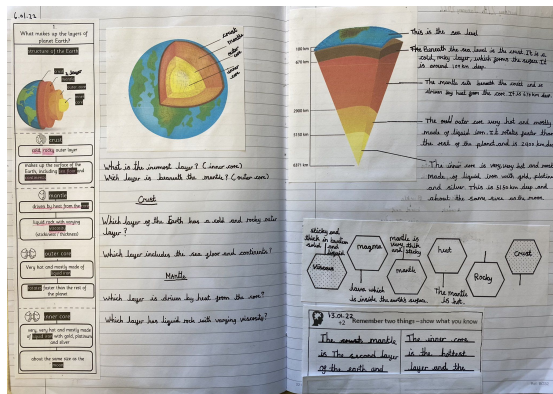 6.01.22
1
What makes up the layers of
planet Earth?
structure of the Earth
crust
cold, rocky outer layer
makes up the surface of the
Earth, including
mantle
driven by heat from the core
liquid rock with varying
(stickiness/ thickness)
outer core
Very hot and mostly made of
faster than the rest of the
planet.
inner core
very, very hot and mostly made
of with gold, platinum
and silver
about the same size as the
crust
mantle
outer
core
inner
core
What is the inermost layer? (inner core)
Which layer is beneath the mantle? (outer core)
Crust
Which layer of the Earth has a cold and rocky outer
layer?
Which layer includes the sea floor and continents?
Mantle
Which layer is driven by heat from the core?
Which layer has liquid rock with varying viscosity?
100 km
670 km
2900 km
5150 km
6371 km
This is the sea level
Beneath the sea level is the crust. It is a
cold, rocky layer, which forms the surface. It
is around 100 km deep.
The mantle sits beneath the crust and is
driven by heat from the core. It is 670 km deep.
The outer core very hot and mostly
made of liquid iron. It rotates faster than
the rest of the planet and is 2900 km deep
The inner core is very, very hot and most
made of liquid iron with gold, platinum
and silver. This is 5150 km deep and
about the same size as the moon.
sticky and
thick in between
solid and
liquid
Viscous
magma
lava which
is inside the earth's surface.
mantle is
very thick
and sticky
mantle
heat
The mantle
is hot.
Rocky
Crust
13.01.22
+2 Remember two things – show what you know
The mantle
is The second layer
of the earth and
The inner core
is the hottest
layer and the